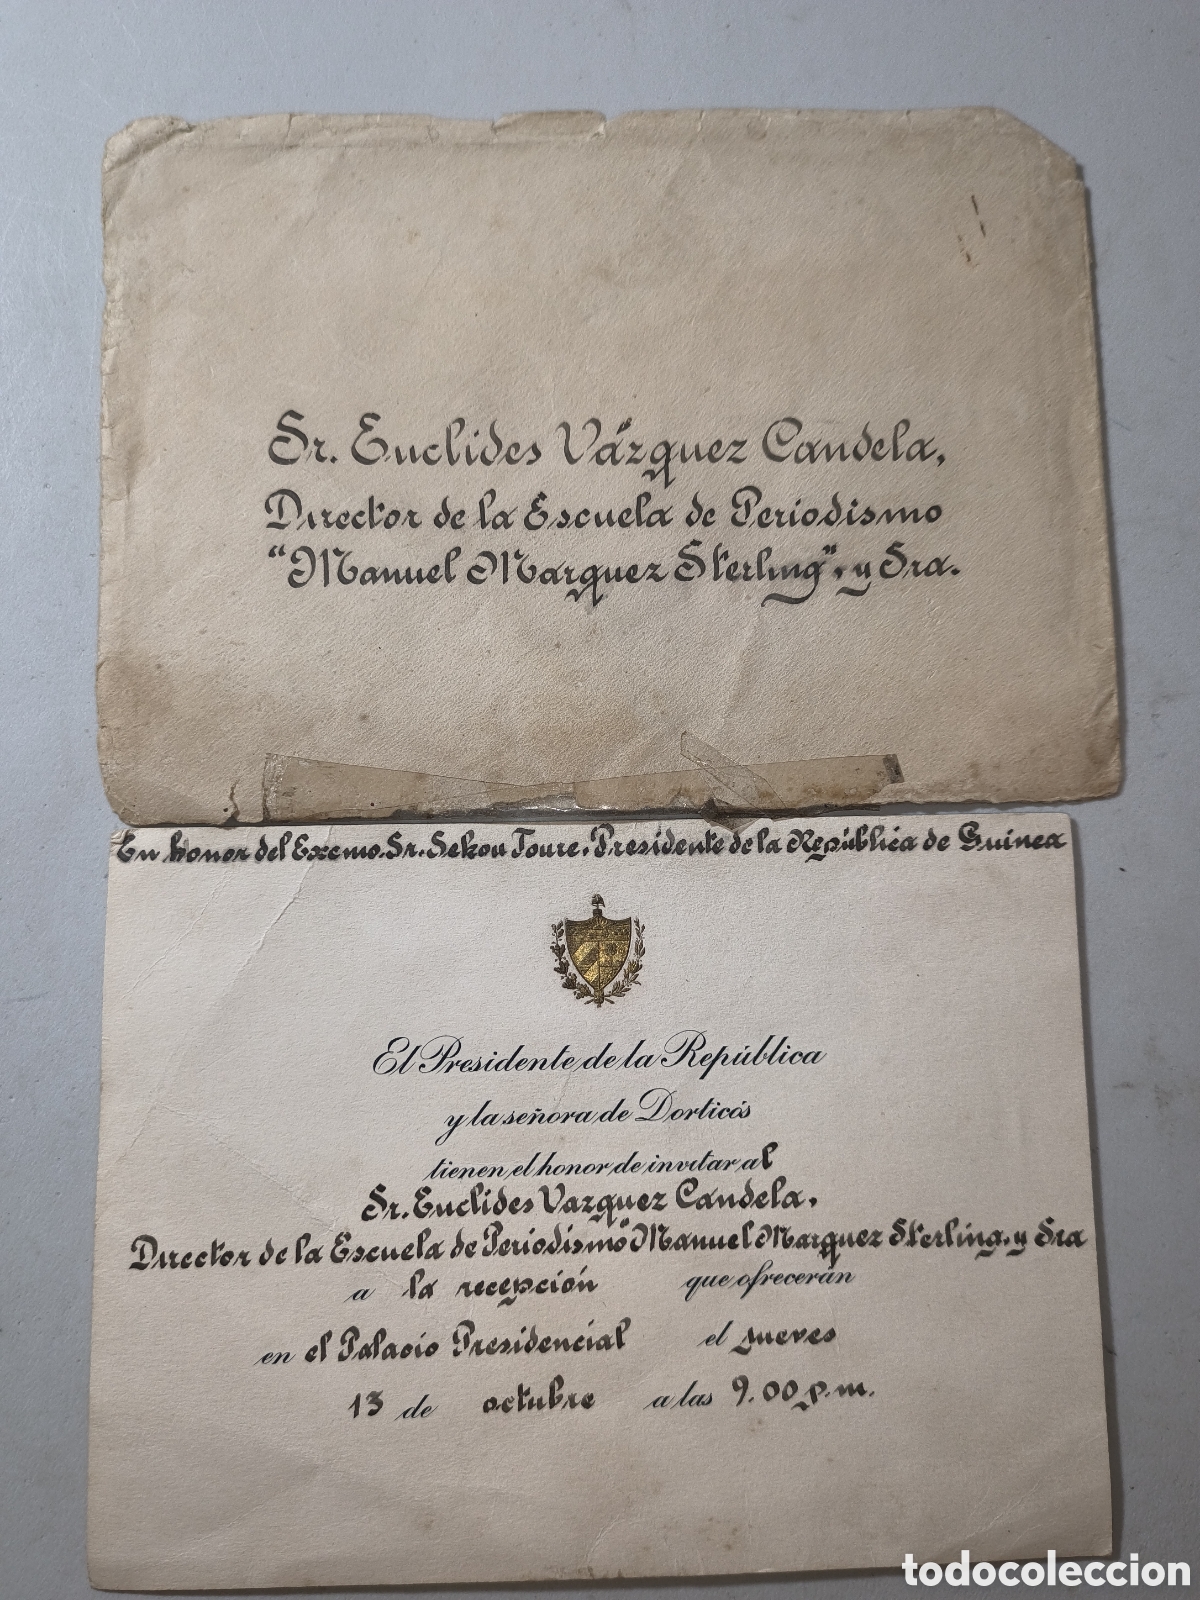 Sr. Euclides Vázquez Candela,
Director de la Escuela de Periodismo
"Manuel Marquez Sterling", y Sra.
En honor del Excmo. Sr. Sekou Toure, Presidente de la República de Guinea
El Presidente de la República
y la señora de Dorticós
tienen el honor de invitar al
Sr. Euclides Vazquez Candela,
Director de la Escuela de Periodismo "Manuel Marquez Sterling, y Sra
a la recepción que ofrecerán
en el Palacio Presidencial el jueves
13 de octubre a las 9.00 p.m.
todocoleccion